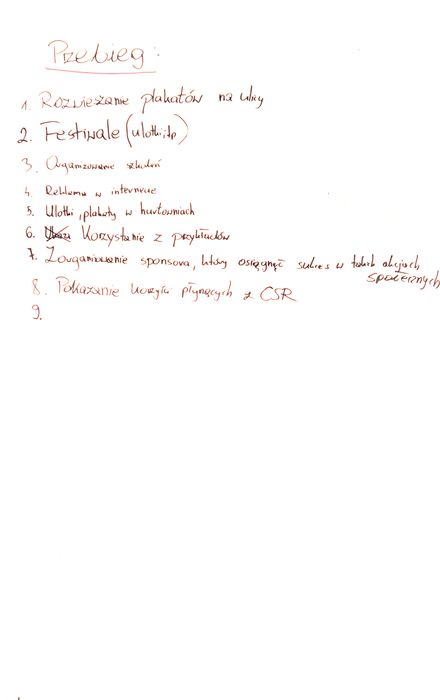 Przebieg:
1. Rozwieszanie plakatów na ulicy
2. Festiwale (ulotki itp)
3. Organizowanie szkoleń
4. Reklama w internecie
5. Ulotki, plakaty w hurtowniach
6. Korzystanie z przykładów
7. Zorganizowanie sponsora, który osiągnął sukces w takich akcjach
społecznych
8. Pokazanie korzyści płynących z CSR
9.